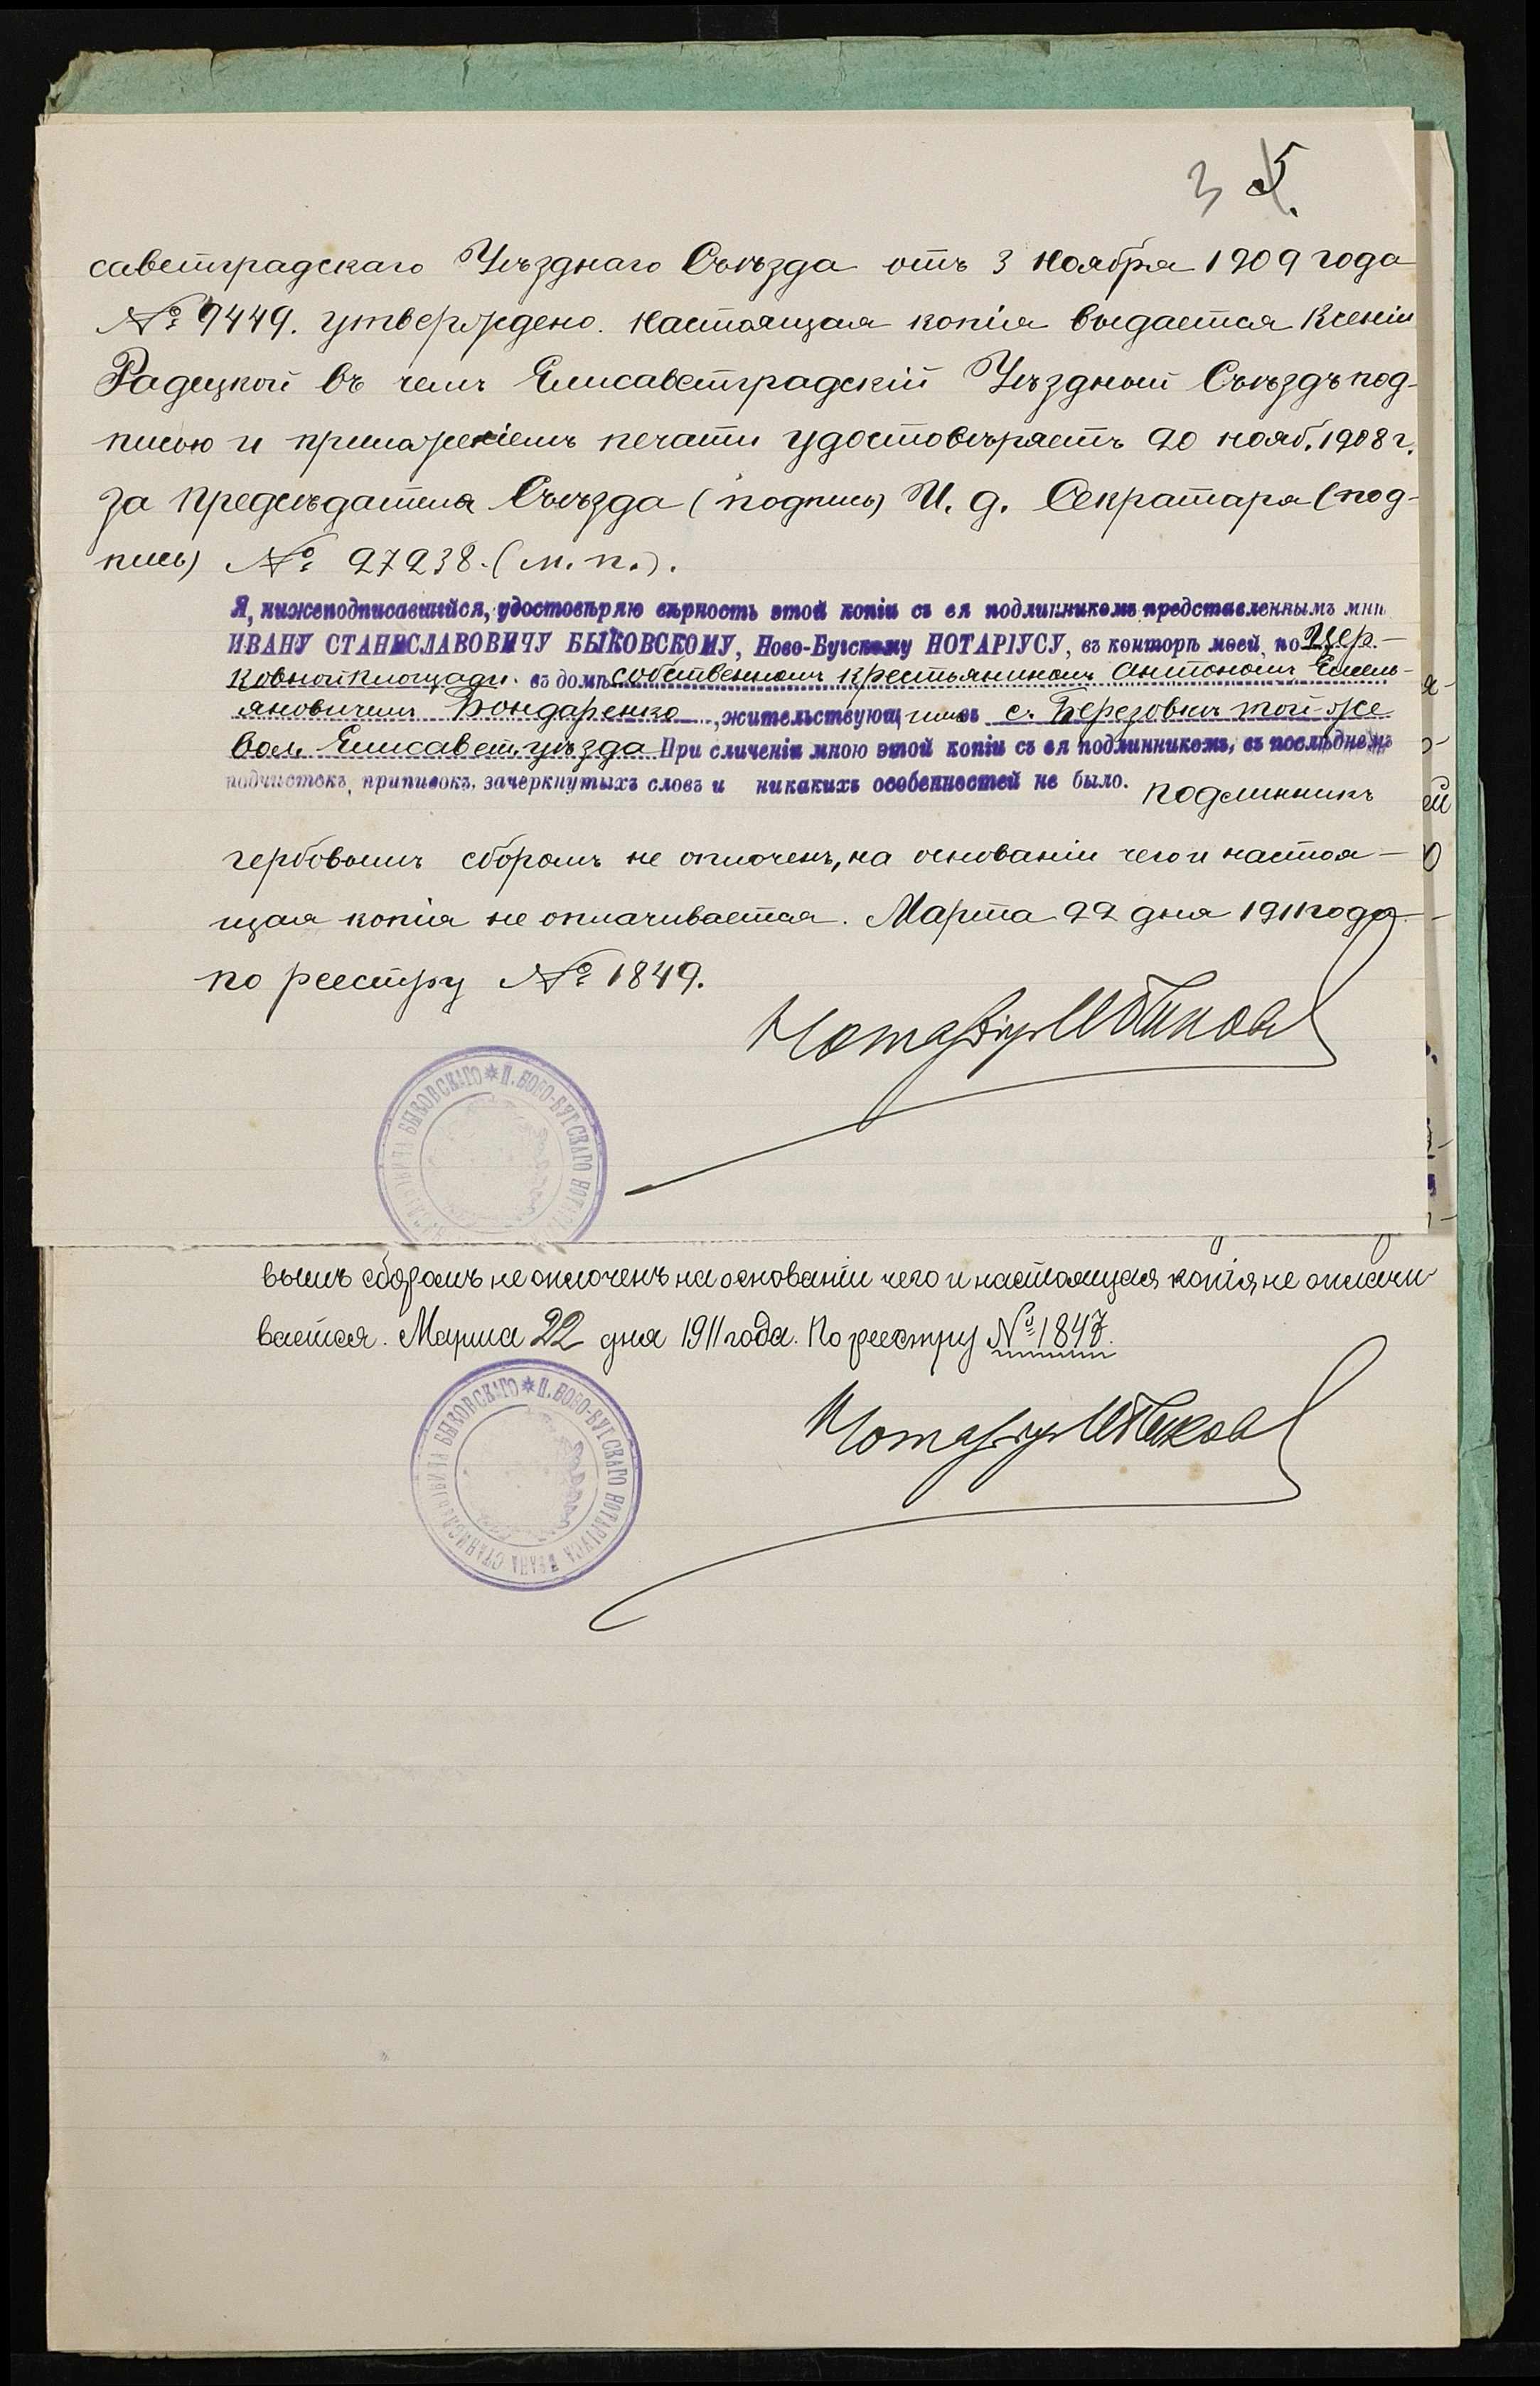 3 5.
саветградскаго Уѣзднаго Съѣзда отъ 3 Ноября 1909 года
№ 9449. утверждено. Настоящая копія выдается Ксеніи
Радецкой въ чемъ Елисаветградскій Уѣздный Съѣздъ под-
писью и приложеніемъ печати удостовѣряетъ 20 нояб. 1908 г.
За Предсѣдателя Съѣзда (подпись) И. д. Секратаря (под-
пись) № 27238. (м. п.).
Я, нижеподписавшійся, удостовѣряю вѣрность этой копіи съ ея подлинникомъ представленнымъ мнѣ
ИВАНУ СТАНИСЛАВОВИЧУ БЫКОВСКОМУ, Ново-Бугскому НОТАРІУСУ, въ конторѣ моей, по Цер-
ковной площади въ домѣ собственномъ крестьяниномъ Антономъ Емель-
яновичемъ Бондаренко, жительствующимъ въ с. Березовкѣ той-же
вол. Елисавет. уѣзда При сличеніи мною этой копіи съ ея подлинникомъ, въ послѣднемъ
подчистокъ, приписокъ, зачеркнутыхъ словъ и никакихъ особенностей не было. Подлинникъ
гербовымъ сборомъ не оплоченъ, на основаніи чего и настоя-
щая копія не оплачивается. Марта 22 дня 1911 года
по реестру № 1849.
Нотаріусъ ИБыковс
И. НОВО-БУГСКАГО НОТАРІ БЫКОВСКАГО
вымъ сборомъ не оплоченъ на основаніи чего и настоящая копія не оплачи-
вается. Марта 22 дня 1911 года. По реестру № 1847.
Нотаріусъ ИБыковс
И. НОВО-БУГСКАГО НОТАРІУСА ИВАНА СТАНИСЛАВОВИЧА БЫКОВСКАГО